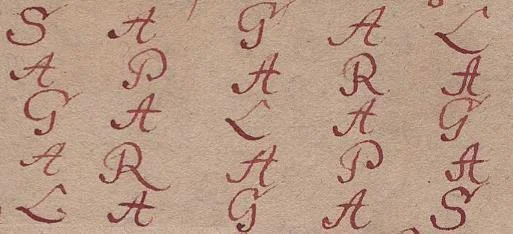 S A G A L
A P A R A
G A L A G
A R A P A
L A G A S